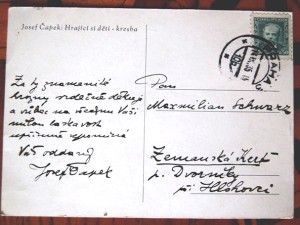 Josef Čapek: Hrající si děti - kresba
Za ty znamenité
hrozny srdečně děkuji
a vůbec na všechnu Vaši
milou laskavost
upřímně vzpomíná
Váš oddaný
Josef Čapek
Pan
Maxmilian Schwarz
Zemanská Kert
p. Dvorníky
při Hlohovci
PRAHA